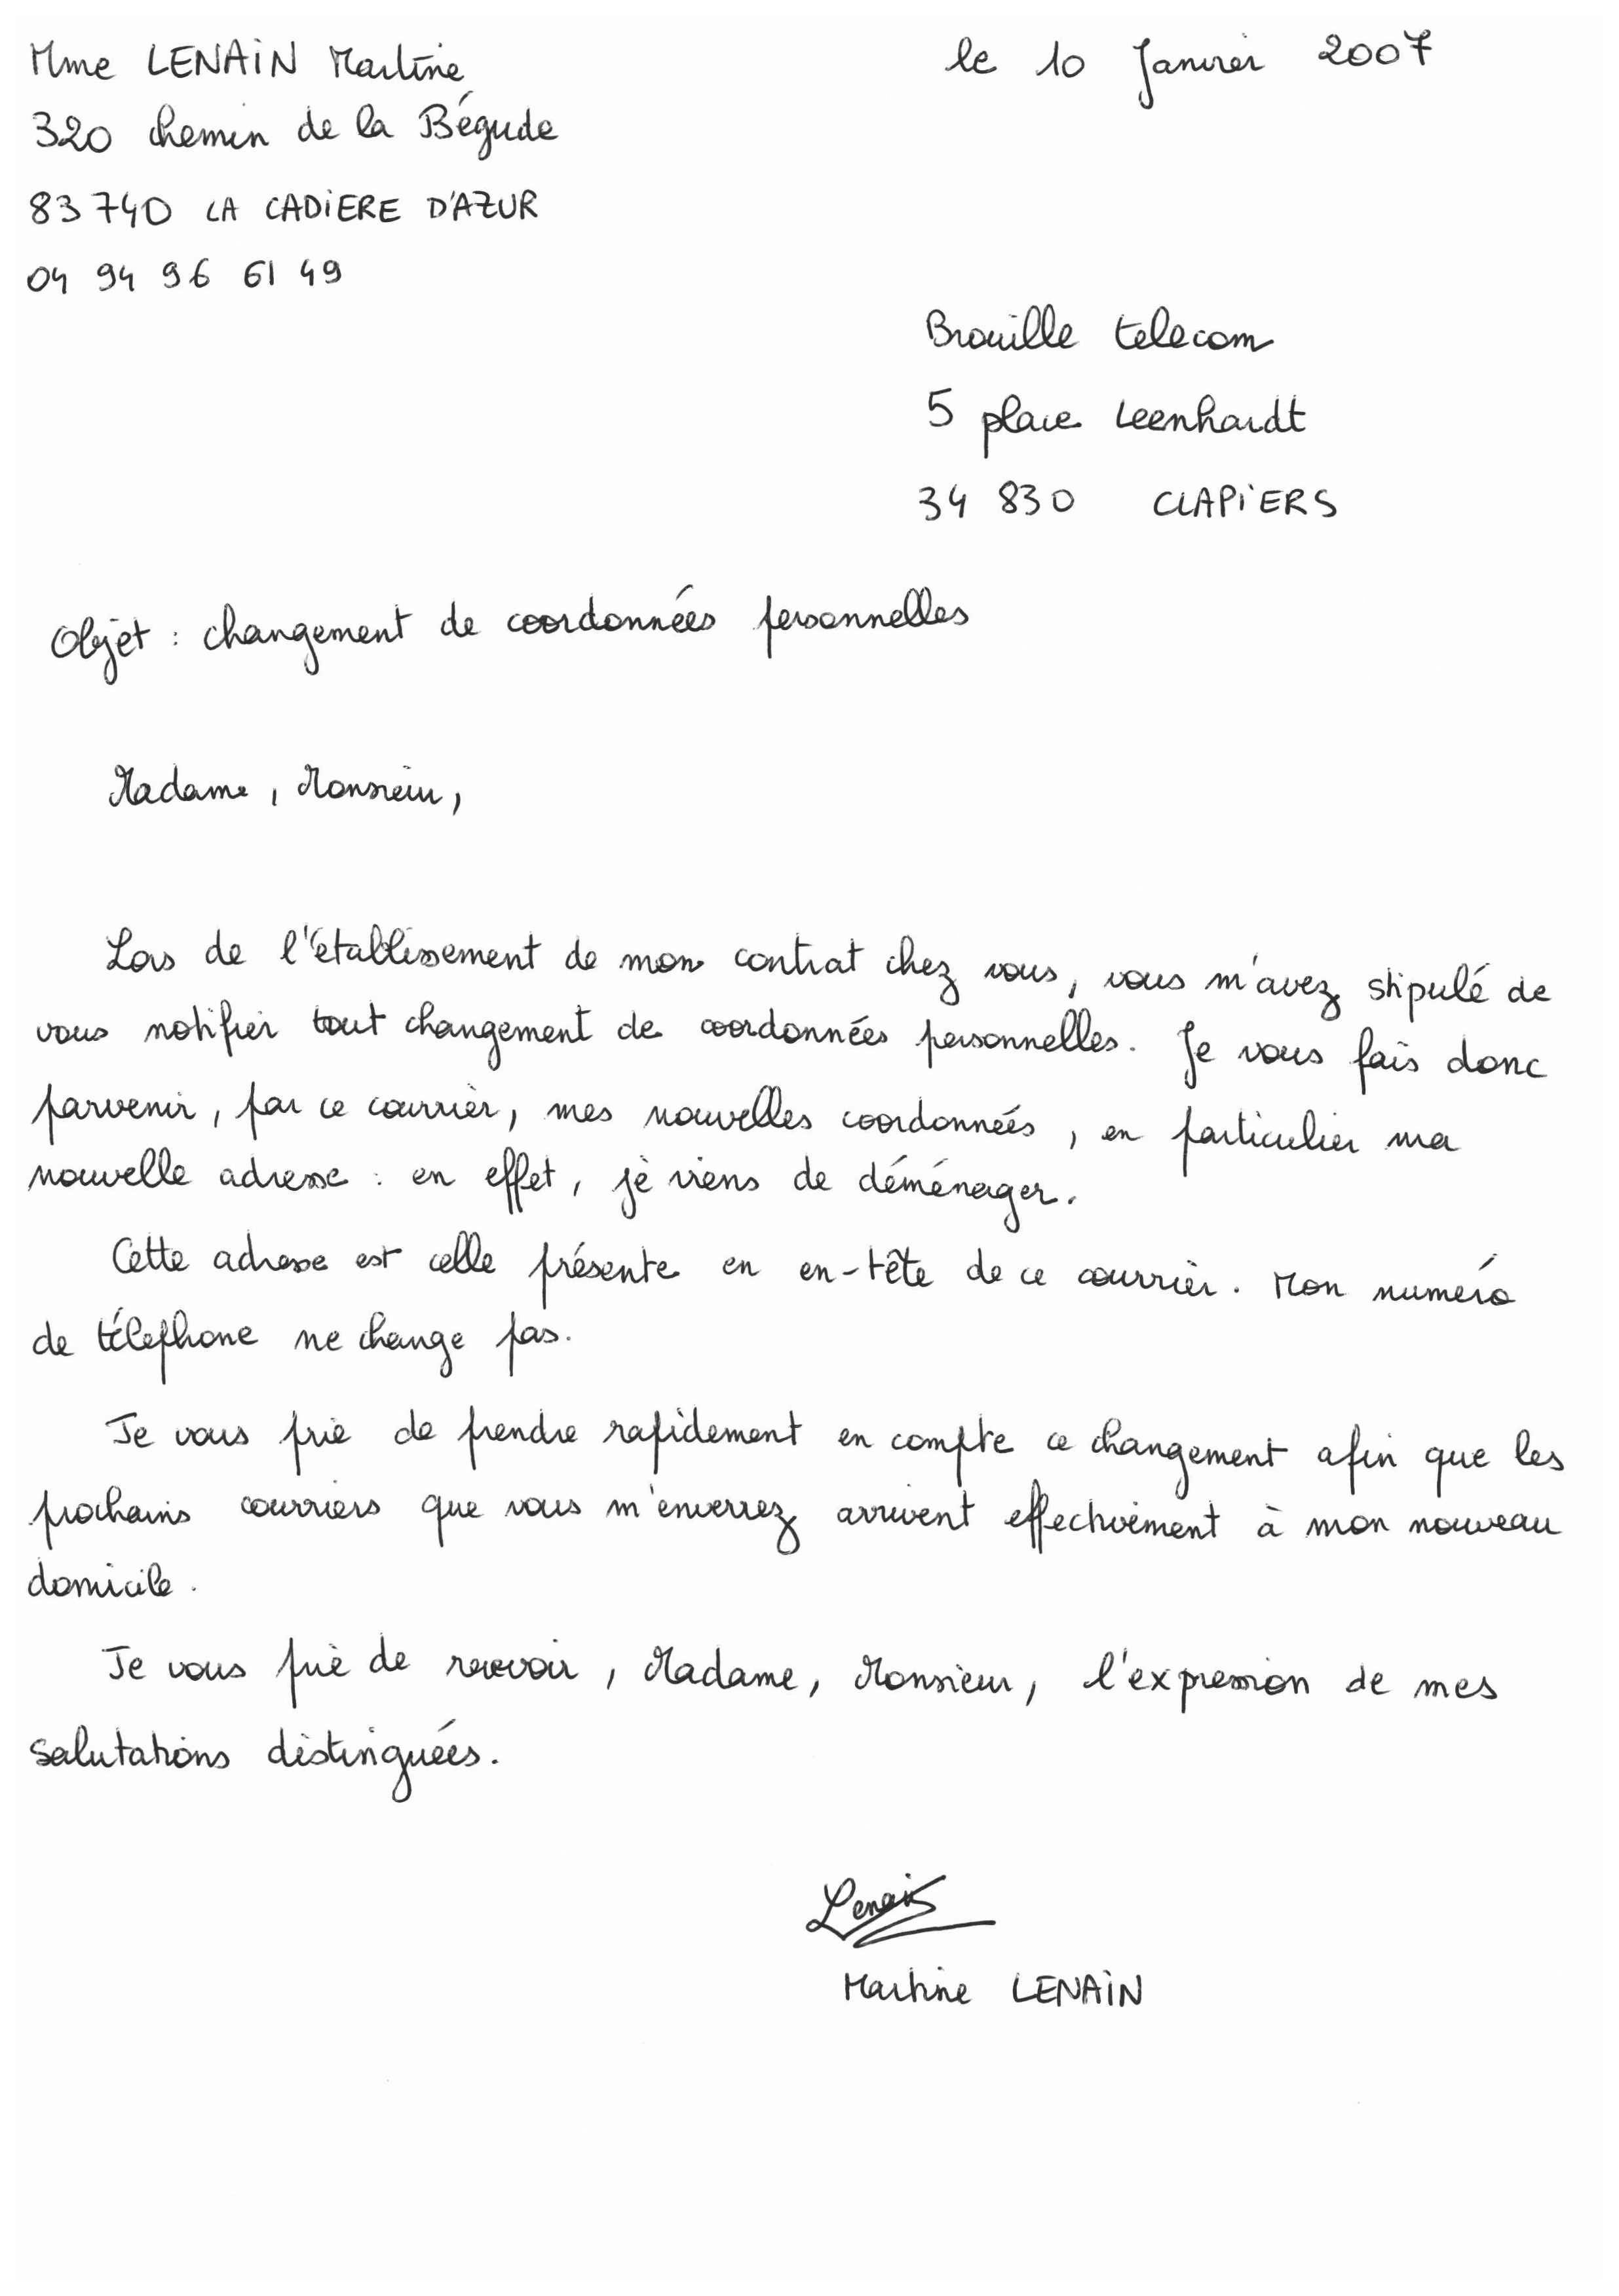 Mme LENAIN Martine
le 10 Janvier 2007
320 chemin de la Bégude
83740 LA CADIERE D'AZUR
04 94 96 61 49
Brouille telecom
5 place Leenhardt
34 830 CLAPIERS
Objet : changement de coordonnées personnelles
Madame, Monsieur,
Lors de l'établissement de mon contrat chez vous, vous m'avez stipulé de
vous notifier tout changement de coordonnées personnelles. Je vous fais donc
parvenir, par ce courrier, mes nouvelles coordonnées, en particulier ma
nouvelle adresse : en effet, je viens de déménager.
Cette adresse est celle présente en en-tête de ce courrier. Mon numéro
de téléphone ne change pas.
Je vous prie de prendre rapidement en compte ce changement afin que les
prochains courriers que vous m'enverrez arrivent effectivement à mon nouveau
domicile.
Je vous prie de recevoir, Madame, Monsieur, l'expression de mes
salutations distinguées.
Lenain
Martine LENAIN